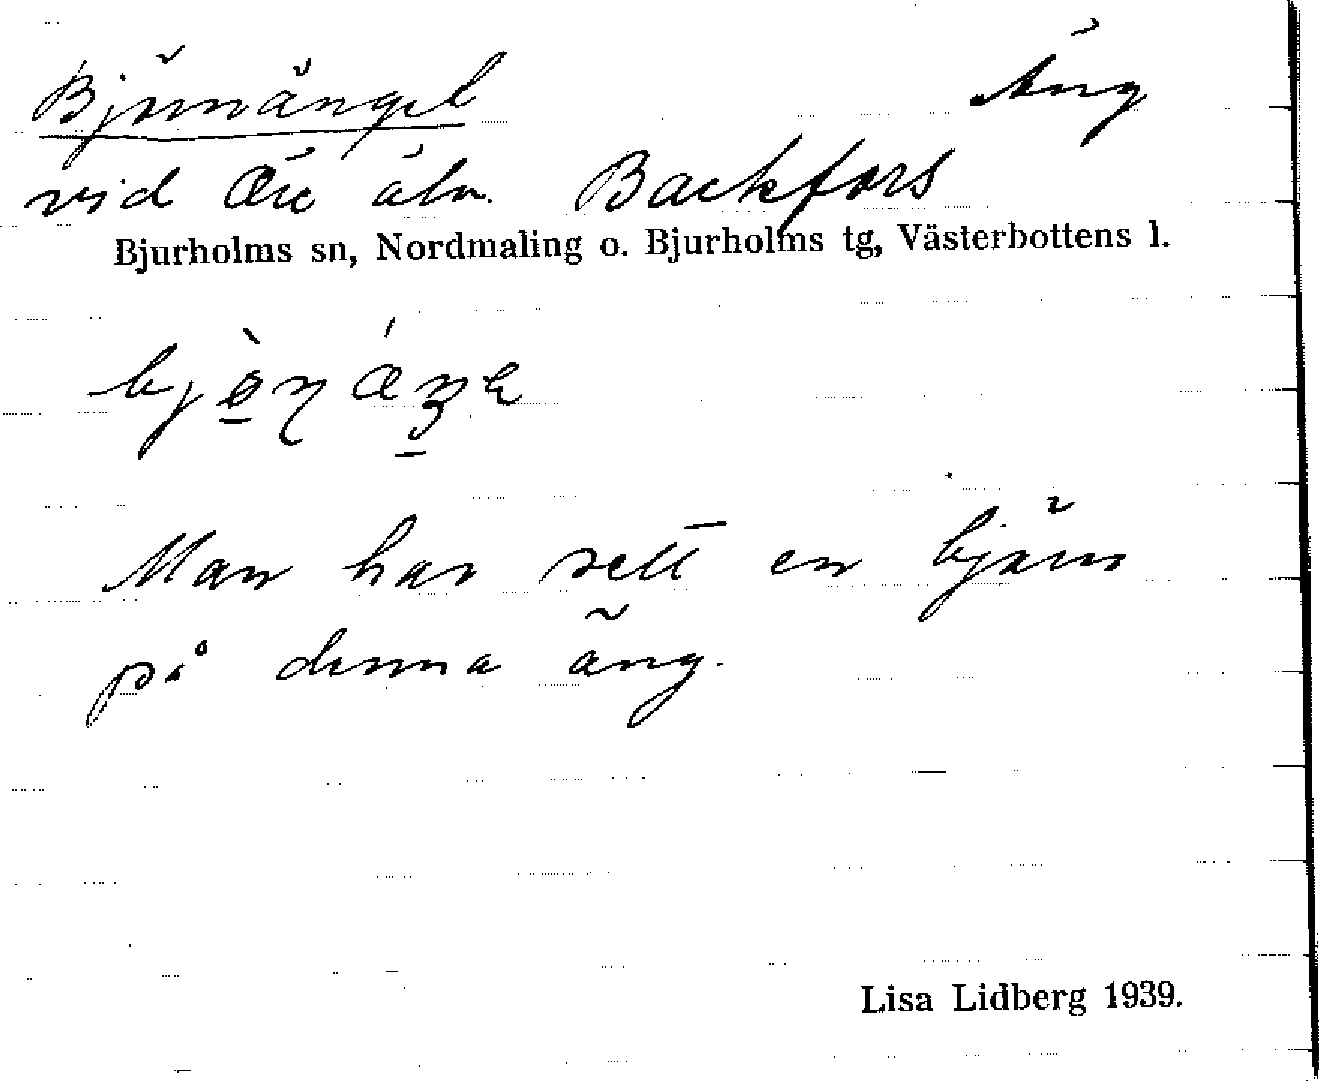 Björnänget Äng
vid Öre älv. Backfors
Bjurholms sn, Nordmaling o. Bjurholms tg, Västerbottens l.
Man har sett en björn
på denna äng.
Lisa Lidberg 1939.